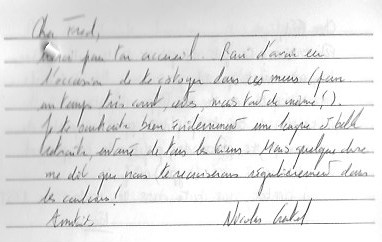 Cher Fred,
Merci pour ton accueil! Ravi d'avoir eu
l'occasion de te cotoyer dans ces murs (pour
un temps très court, certes, mais tout de même!).
Je te souhaite bien évidemment une longue et belle
retraite, entouré de tous les tiens. Mais quelque chose
me dit que nous te recroiserons régulièrement dans
les couloirs!
Amitiés Nicolas